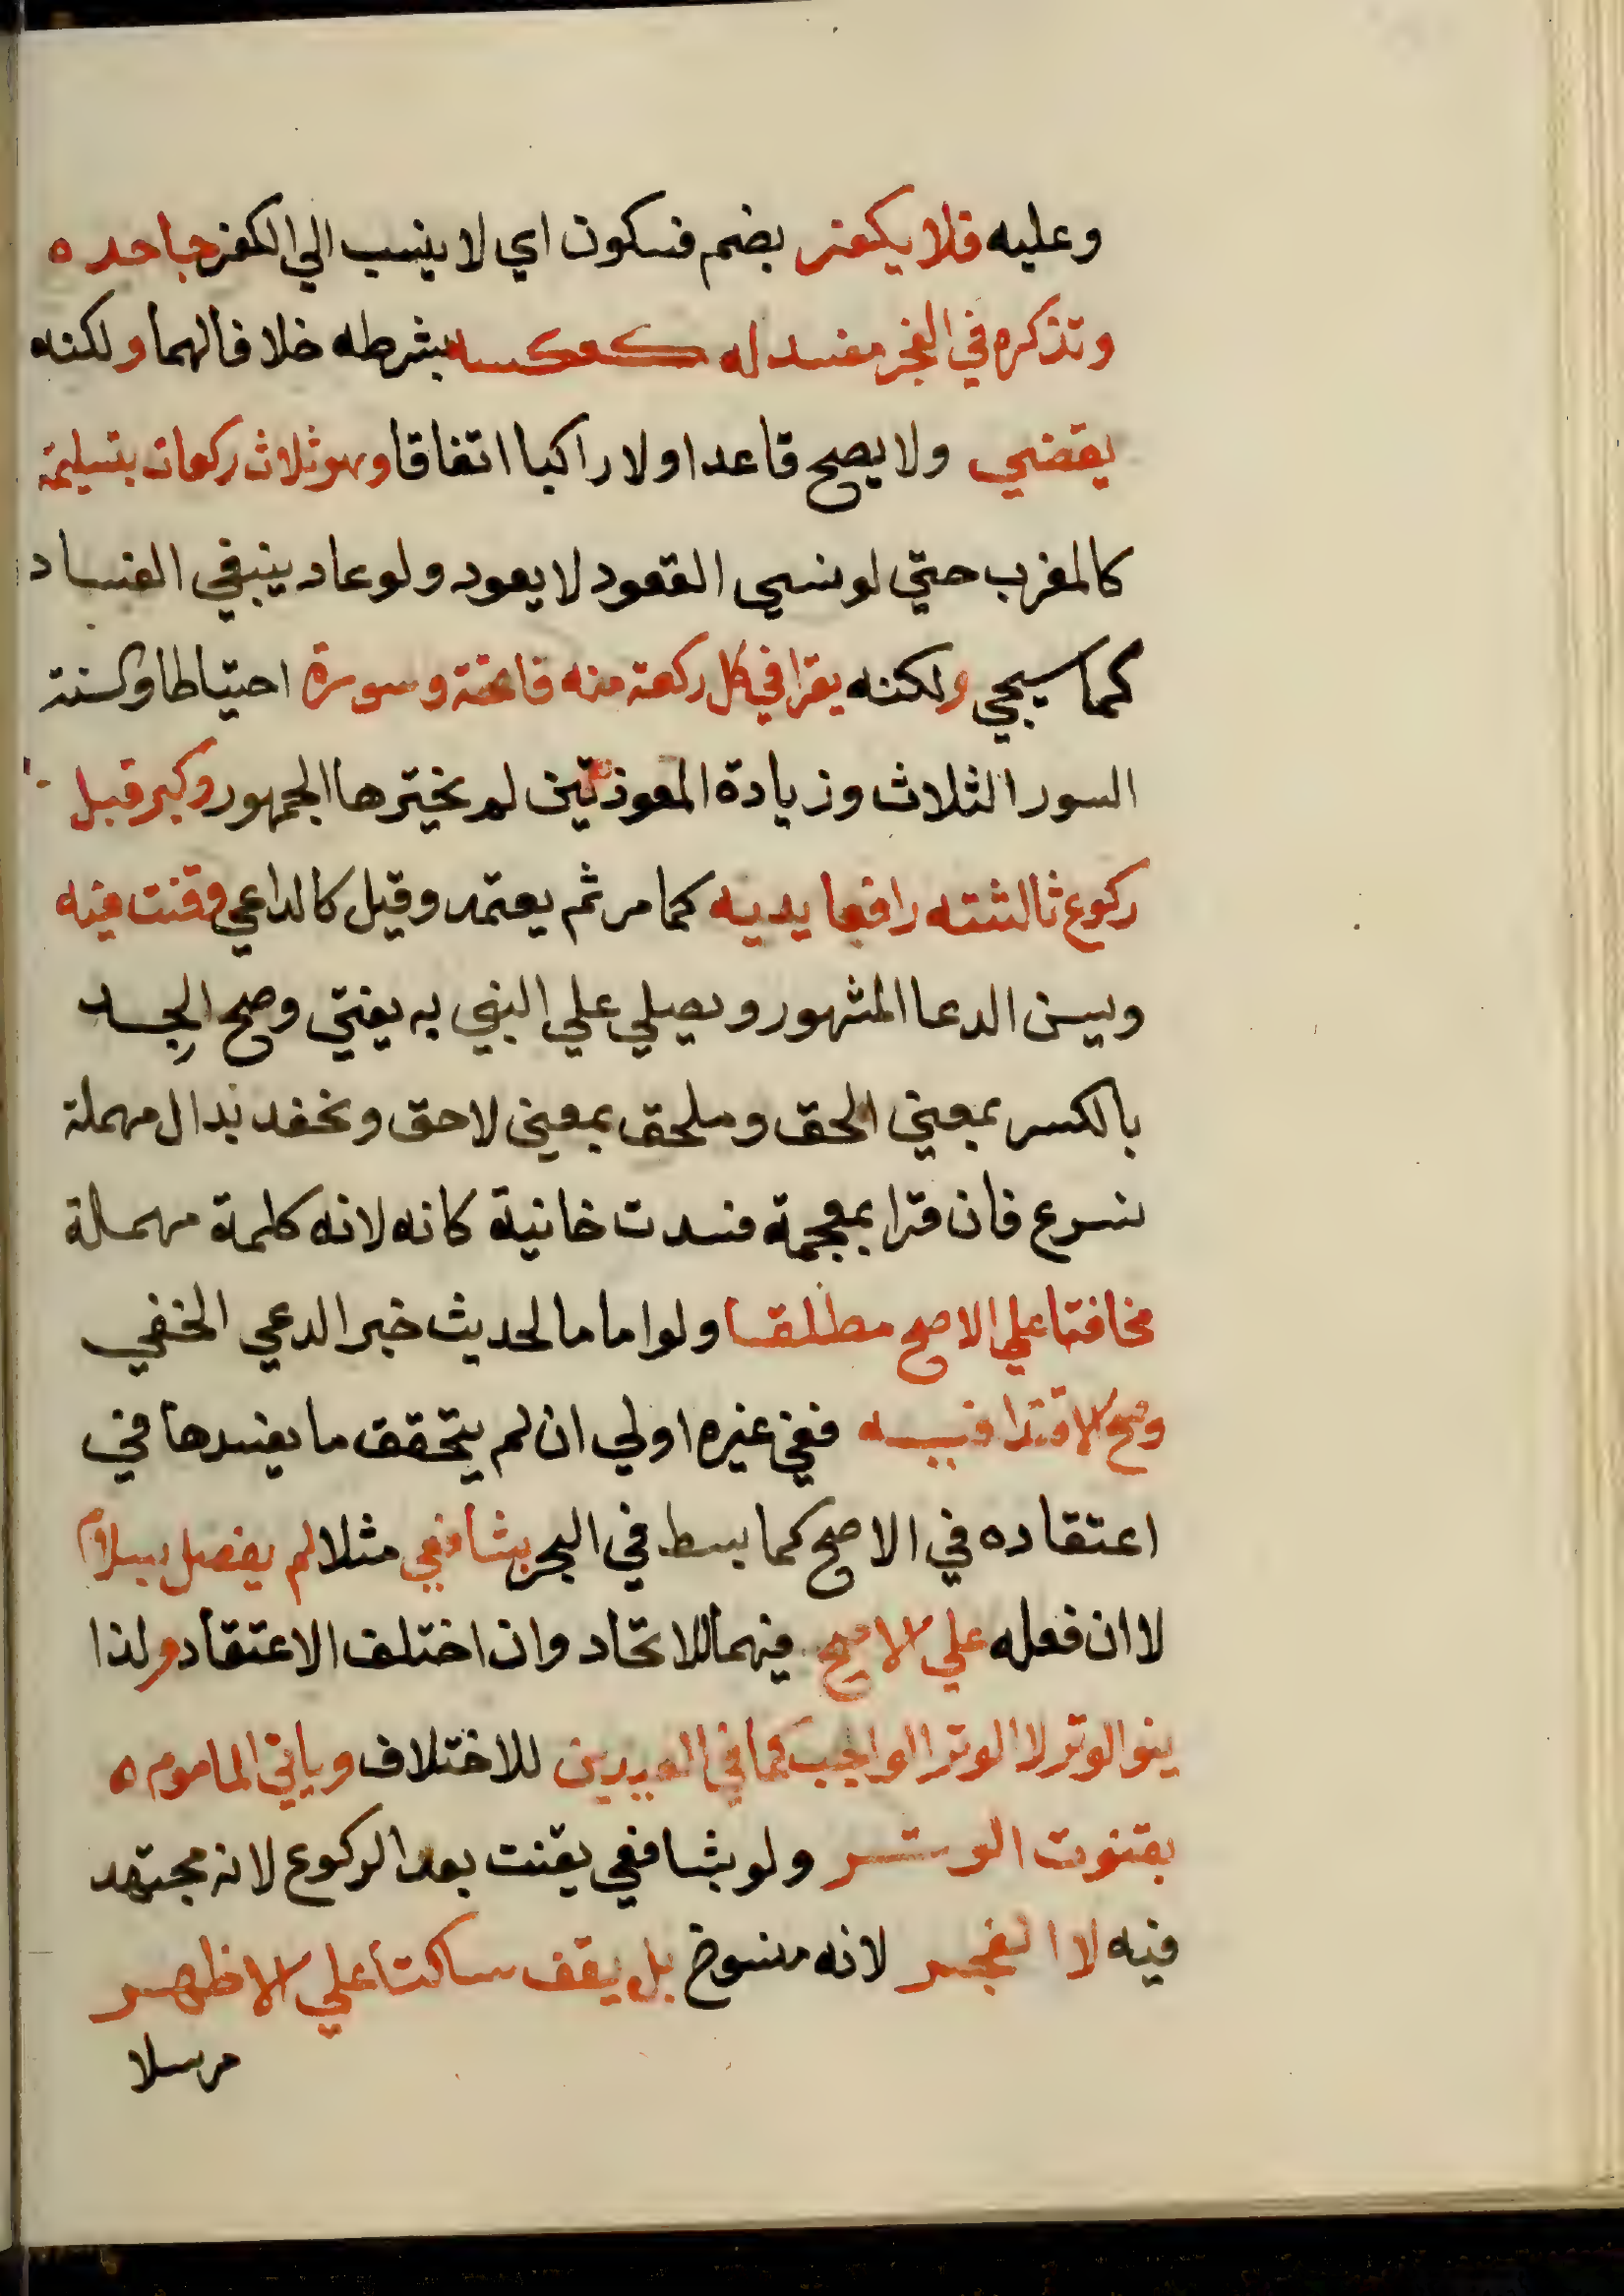 وعليه فلا يكفر بضم فسكون اي لا ينسب الي الكفر جاحده
وتذكره في الفجر مفسد له كعكسه بشرطه خلافا لهما ولكنه
يقضي ولا يصح قاعدا ولا راكبا اتفاقا وهو ثلاث ركعات بتسليمة
كالمغرب حتي لو نسي القعود لا يعود ولو عاد ينبغي الفساد
كما سيجي ولكنه يقرا في كل ركعة منه فاتحة وسورة احتياطا والسنة
السور الثلاث وزيادة المعوذتين لم يخترها الجمهور وكبر قبل
ركوع ثالثته رافعا يديه كما مر ثم يعتمد وقيل كالداعي وقنت فيه
ويسن الدعا المشهور ويصلي علي النبي به يفتي وصح الجد
بالكسر بمعني الحق وملحق بمعني لاحق ونحفد بدال مهملة
نسرع فان قرا بمعجمة فسدت خانية كانه لانه كلمة مهملة
مخافتا علي الاصح مطلقا ولو اماما لحديث خير الدعي الخفي
وصح الاقتدا فيه ففي غيره اولي ان لم يتحقق ما يفسدها في
اعتقاده في الاصح كما بسط في البحر بشافعي مثلا لم يفصل بسلام
لا ان فعله علي الاصح فيهما للاتحاد وان اختلف الاعتقاد ولذا
ينوا الوتر لا الوتر الواجب كما في العيدين للاختلاف وياتي الماموم
بقنوت الوتر ولو بشافعي يقنت بعد الركوع لانه مجتهد
فيه لا الفجر لانه منسوخ بل يقف ساكتا علي الاظهر
مرسلا